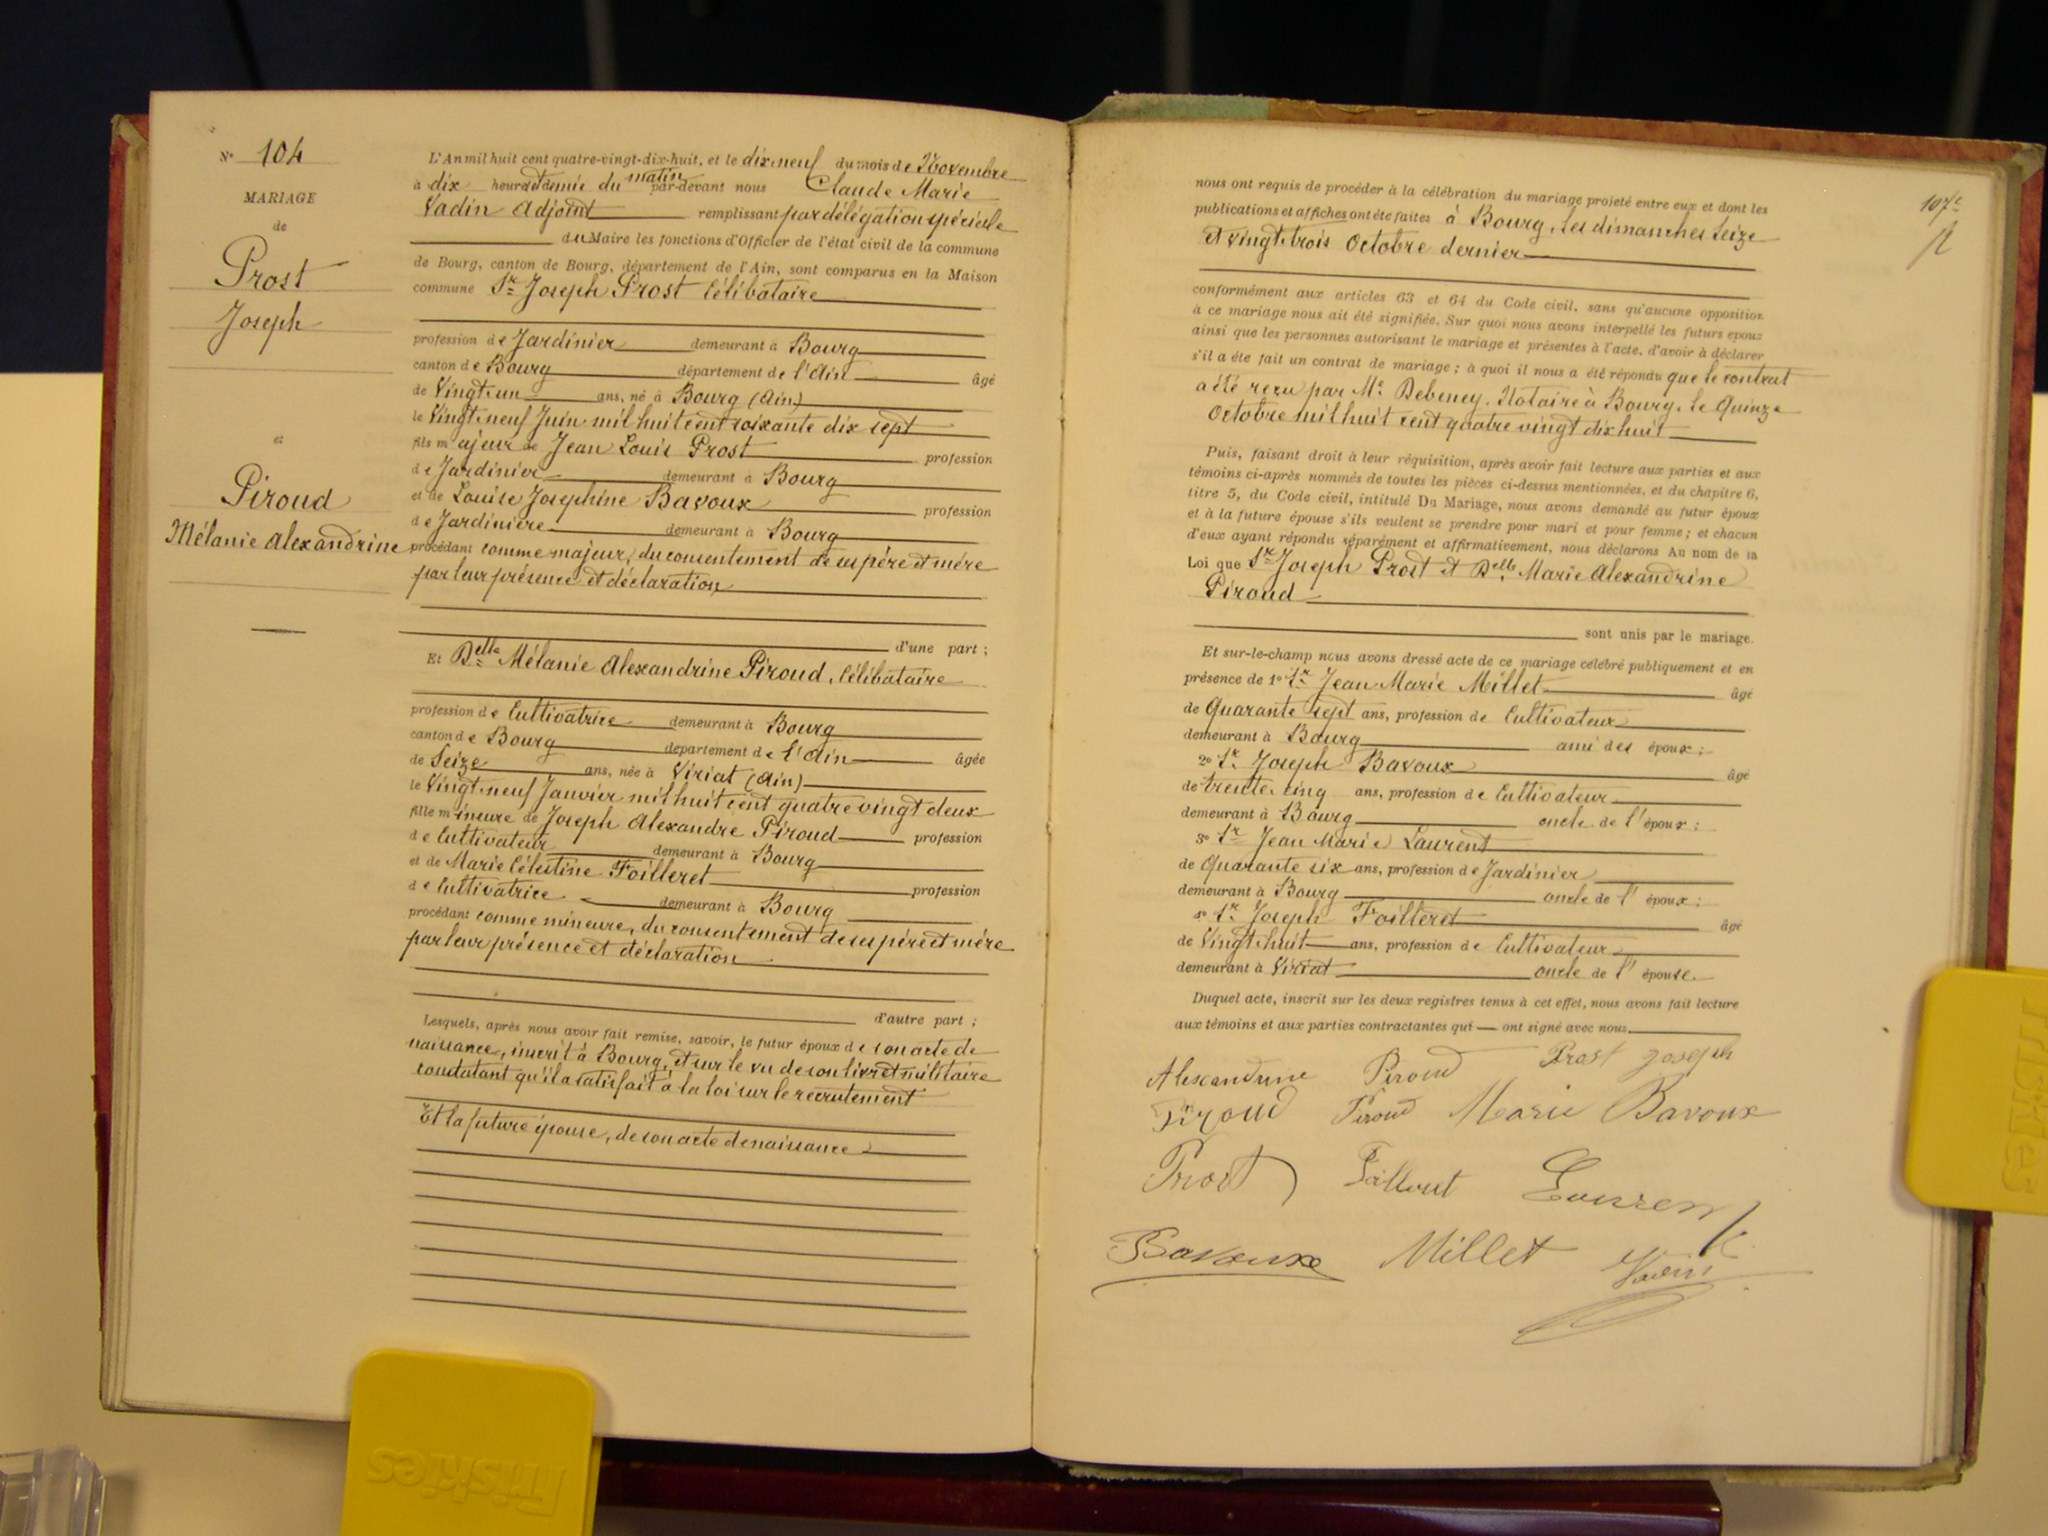 N° 104
MARIAGE
de
Prost
Joseph
et
Piroud
Mélanie Alexandrine
L'An mil huit cent quatre-vingt-dix-huit, et le dix-neuf du mois de Novembre
à dix heures et demie du matin par-devant nous Claude Marie
Vadin Adjoint remplissant par délégation spéciale
du Maire les fonctions d'Officier de l'état civil de la commune
de Bourg, canton de Bourg, département de l'Ain, sont comparus en la Maison
commune Sr Joseph Prost Célibataire
profession de Jardinier demeurant à Bourg
canton de Bourg département de l'Ain âgé
de Vingt-un ans, né à Bourg (Ain)
le Vingt-neuf Juin mil huit cent soixante dix sept
fils majeur de Jean Louis Prost profession
de Jardinier demeurant à Bourg
et de Louise Josephine Bavoux profession
de Jardinière demeurant à Bourg
procédant comme majeur, du consentement de ses père et mère
par leur présence et déclaration
d'une part ;
Et Delle Mélanie Alexandrine Piroud, Célibataire
profession de Cultivatrice demeurant à Bourg
canton de Bourg département de l'Ain âgée
de Seize ans, née à Viriat (Ain)
le Vingt-neuf Janvier mil huit cent quatre vingt deux
fille mineure de Joseph Alexandre Piroud profession
de Cultivateur demeurant à Bourg
et de Marie Célestine Foilleret profession
de Cultivatrice demeurant à Bourg
procédant comme mineure, du consentement de ses père et mère
par leur présence et déclaration
d'autre part ;
Lesquels, après nous avoir fait remise, savoir, le futur époux de son acte de
naissance, inscrit à Bourg, et sur le vu de son livret militaire
constatant qu'il a satisfait à la loi sur le recrutement
Et la future épouse, de son acte de naissance
107e
nous ont requis de procéder à la célébration du mariage projeté entre eux et dont les
publications et affiches ont été faites à Bourg, les dimanches Seize
et vingt-trois Octobre dernier
conformément aux articles 63 et 64 du Code civil, sans qu'aucune opposition
à ce mariage nous ait été signifiée. Sur quoi nous avons interpellé les futurs époux
ainsi que les personnes autorisant le mariage et présentes à l'acte, d'avoir à déclarer
s'il a été fait un contrat de mariage ; à quoi il nous a été répondu que le contrat
a été reçu par Me Debeney, Notaire à Bourg, le Quinze
Octobre mil huit cent quatre vingt dix huit
Puis, faisant droit à leur réquisition, après avoir fait lecture aux parties et aux
témoins ci-après nommés de toutes les pièces ci-dessus mentionnées, et du chapitre 6,
titre 5, du Code civil, intitulé Du Mariage, nous avons demandé au futur époux
et à la future épouse s'ils veulent se prendre pour mari et pour femme ; et chacun
d'eux ayant répondu séparément et affirmativement, nous déclarons Au nom de la
Loi que Sr Joseph Prost et Delle Marie Alexandrine
Piroud
sont unis par le mariage.
Et sur-le-champ nous avons dressé acte de ce mariage célébré publiquement et en
présence de 1° Sr Jean Marie Millet âgé
de Quarante sept ans, profession de Cultivateur
demeurant à Bourg ami des époux ;
2° Sr Joseph Bavoux âgé
de trente cinq ans, profession de Cultivateur
demeurant à Bourg oncle de l'époux ;
3° Sr Jean Marie Laurent
de Quarante six ans, profession de Jardinier
demeurant à Bourg oncle de l'époux ;
4° Sr Joseph Foilleret âgé
de Vingt-huit ans, profession de Cultivateur
demeurant à Viriat oncle de l'épouse.
Duquel acte, inscrit sur les deux registres tenus à cet effet, nous avons fait lecture
aux témoins et aux parties contractantes qui ont signé avec nous
Alexandrine Piroud Prost Joseph
Piroud Piroud Marie Bavoux
Prost Foilleret Laurent
Bavoux Millet Vadin
Friskies
Friskies